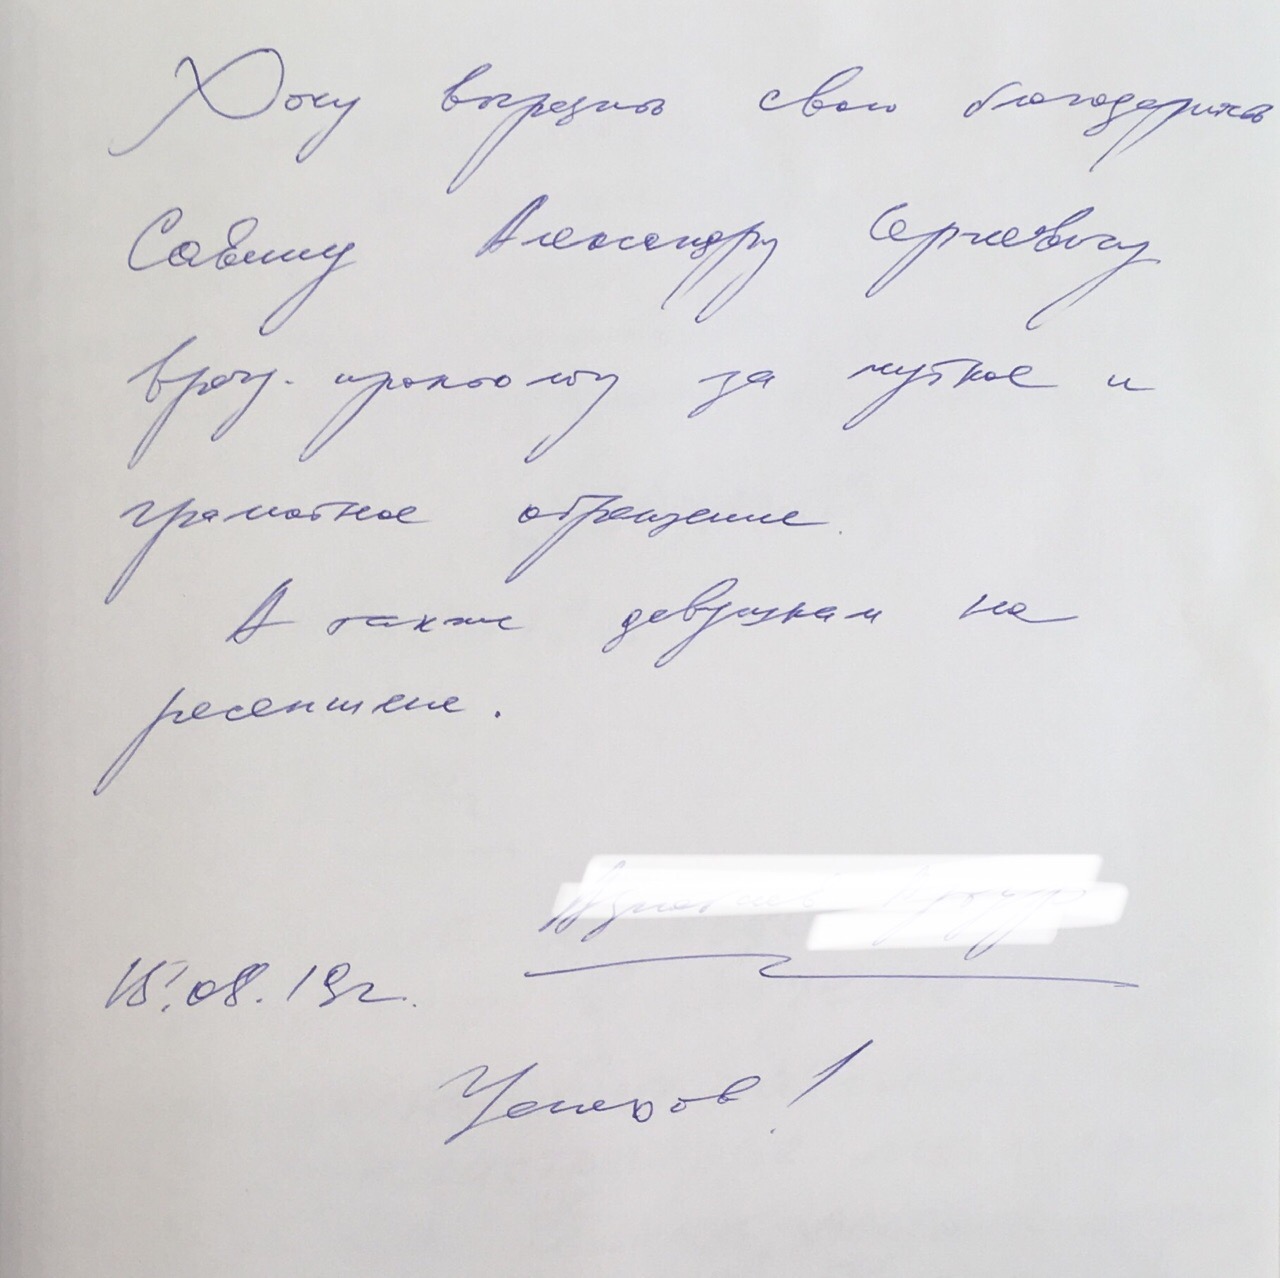 Хочу выразить свою благодарность
Савину Александру Сергеевичу
врачу-проктологу за чуткое и
грамотное обращение.
А также девушкам на
ресепшене.
15.08.19г.
Успехов!